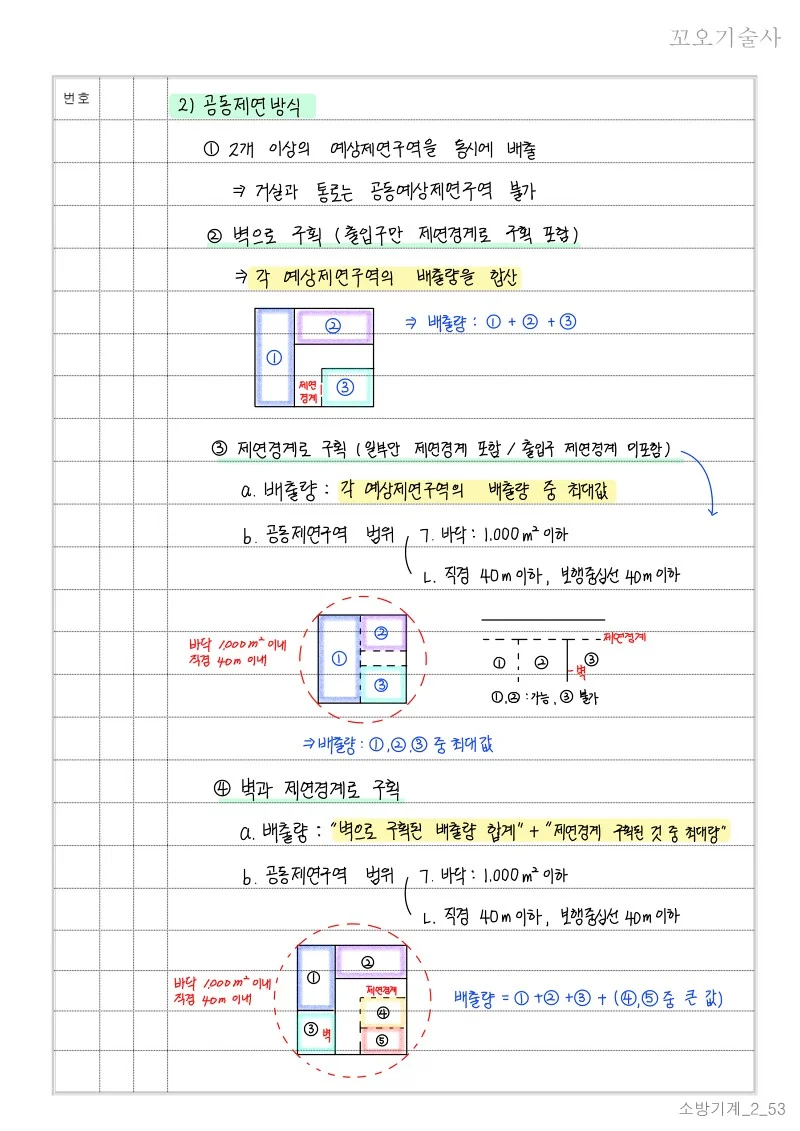 꼬오기술사
번호
2) 공동제연방식
① 2개 이상의 예상제연구역을 동시에 배출
⇒ 거실과 통로는 공동예상제연구역 불가
② 벽으로 구획 (출입구만 제연경계로 구획 포함)
⇒ 각 예상제연구역의 배출량을 합산
①
②
제연
경계
③
⇒ 배출량 : ① + ② + ③
③ 제연경계로 구획 (일부만 제연경계 포함 / 출입구 제연경계 미포함)
a. 배출량 : 각 예상제연구역의 배출량 중 최대값
b. 공동제연구역 범위
ㄱ. 바닥 : 1,000m² 이하
ㄴ. 직경 40m 이하, 보행중심선 40m 이하
바닥 1,000m² 이내
직경 40m 이내
①
②
③
제연경계
① ② ③
벽
①,② : 가능, ③ 불가
⇒ 배출량 : ①,②,③ 중 최대값
④ 벽과 제연경계로 구획
a. 배출량 : "벽으로 구획된 배출량 합계" + "제연경계 구획된 것 중 최대량"
b. 공동제연구역 범위
ㄱ. 바닥 : 1,000m² 이하
ㄴ. 직경 40m 이하, 보행중심선 40m 이하
바닥 1,000m² 이내
직경 40m 이내
①
②
제연경계
④
③ 벽
⑤
배출량 = ① + ② + ③ + (④,⑤ 중 큰 값)
소방기계_2_53